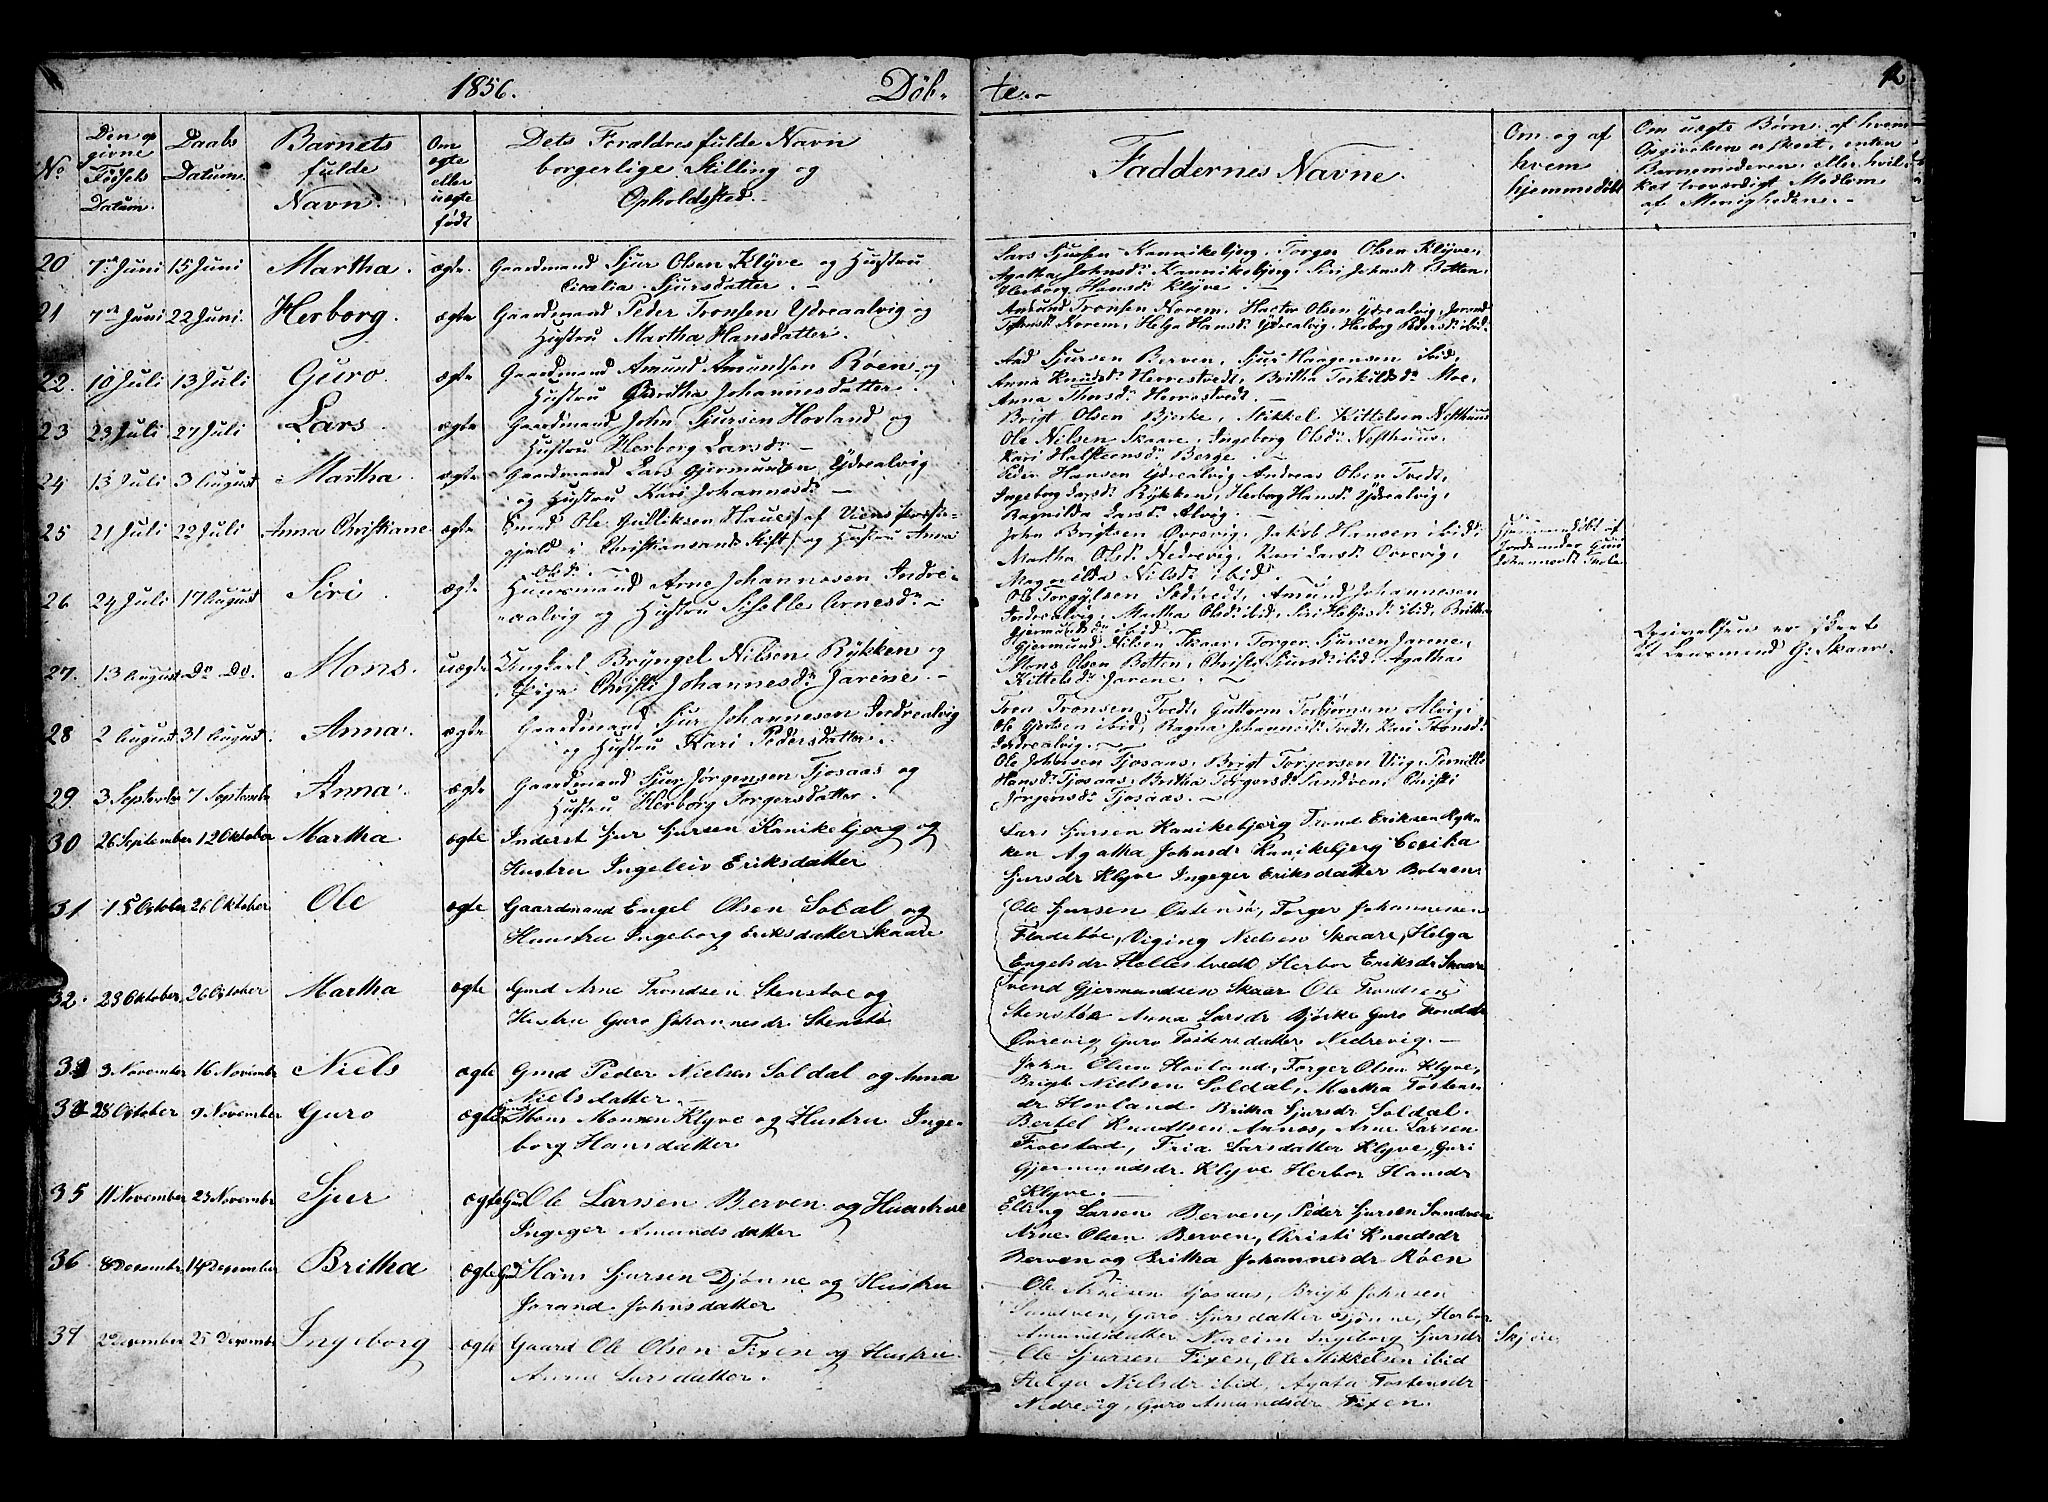 1856.
Døb-
te.
12
No
Den op
givne
Fødsels
Datum.
Daabs
Datum.
Barnets
fulde
Navn.
Om
ægte
eller
uægte
født
Dets Forældres fulde Navn
borgerlige Stilling og
Opholdssted.
Faddernes Navne.
Om og af
hvem
hjemmedøbt
Om uægte Børn, af hvem
Opgivelsen er skeet, enten
Barnemoderen, eller hvil-
ket troværdigt Medlem
af Menigheden.
20 7de Juni 15 Juni Martha. ægte. Gaardmand Sjur Olsen Klyve og Hustru
Cicælia Sjursdatter.
Lars Sjursen Kannikebjerg, Torger Olsen Klyve,
Agatha Johnsdr Kannikebjerg, Siri Johnsdr Botten,
Herborg Hansdr Klyve.
21 7de Juni 22 Juni. Herborg. ægte Gaardmand Peder Tronsen Ydreaalvig og
Hustru Martha Hansdatter.
Amund Tronsen Norem, Olsen Ydrealvig,
Norem, Helga Hansdr Ydrealvig, Herborg Pedersdr ibid.
22. 10 Juli 13 Juli Guro. ægte Gaardmand Amund Amundsen Røen og
Hustru Britha Johannesdatter.
Aad Sjursen Berven, Sjur Haagensen ibid,
Anna Knudsdr Herrestvedt, Britha Torkildsdr Moe,
Anna Herrestvedt.
23 23 Juli 27 Juli Lars. ægte Gaardmand John Sjursen Hovland og
Hustru Herborg Larsdr
Brigt Olsen Bjerke, Mikkel Kittelsen Nesthuus
Ole Nilsen Skaare, Ingeborg Olsdr Nesthuus,
Kari Halsteensdr Berge.
24 13 Juli 3 August Martha. ægte Gaardmand Lars Gjermundsen Ydrealvig
og Hustru Kari Johannesdr
Peder Hansen Ydrealvig, Andreas Olsen Tvedt,
Ingeborg Larsdr Rykken, Herborg Hansdr Ydrealvig,
Ragnilda Larsdr Alvig.
25 21 Juli 22 Juli Anna Christiane ægte Ole Gulliksen af
gjeld i Christiansands Stift og Hustru Anna
Olsdr.
John Brigtsen Øvrevig, Jakob Hansen ibid,
Martha Olsdr Nedrevig, Kari Larsdr Øvrevig,
Magnilda Nilsdr ibid.
Hjemmedøbt af
Jordemoder
Johannesdr
26 24 Juli 17 August Siri ægte Huusmand Arne Johannesen Indre-
aalvig og Hustru Sichelle Arnesdr
Ole Torgylsen Sedtvedt, Amund Johannesen
Indrealvig, Martha Olsdr ibid, Siri Heljesdr ibid, Britha
Gjermundsdr ibid.
27. 13 August Do Do. Mons. uægte Ungkarl Bryngel Nilsen Rykken og
Pige Christi Johannesdr Jarene.
Gjermund Nilsen Skaar, Torger Sjursen Jarene,
Mons Olsen Botten, Christi Sjursdr ibid, Agatha
Kittelsdr Jarene.
Opgivelsen er skeet
af Lensmand G. Skaar.
28 2 August 31 August. Anna. ægte Gaardmand Sjur Johannesen Indrealvig
og Hustru Kari Pedersdatter.
Sven Tronsen Tvedt, Guttorm Torbjørnsen Alvig,
Ole Gjertsen ibid, Ragna Johannesdr Tvedt, Kari Tronsdr
Indrealvig.
29 3 September 7 September Anna. ægte Gaardmand Sjur Jørgensen Tjosaas og
Hustru Herborg Torgersdatter.
Ole Johnsen Tjosaas, Brigt Torgersen Viig, Pernille
Hansdr Tjosaas, Britha Torgersdr Sandven, Christi
Jørgensdr Tjosaas.
30 26 September 12 Oktober Martha ægte Inderst Sjur Sjursen Kanikebjerg og
Hustru Ingeleiv Eriksdatter
Lars Sjursen Kanikebjerg Trond Eriksen Ryk-
ken Agatha Johnsdr Kanikebjerg Cecilia
Sjursdr Klyve Ingeger Eriksdatter Botnen.
31 15 October 26 Oktober Ole ægte Gaardmand Engel Olsen Soldal og
Huustru Ingeborg Eriksdatter Skaare
Ole Sjursen Østensø, Torger Johannessen
Fladebøe, Viging Nielsen Skaare, Helga
Engelsdr Hollestvedt Herbor Eriksdr Skaare
32. 23 Oktober 26 October Martha ægte Gmd Arne Trondsen Stenstøe og
Hustru Guro Johannesdr Stenstø
Svend Gjermundsen Skaar Ole Trondsen
Stenstøe Anna Larsdr Bjørke Guro Trondsdr
Øvrevig Guro Tostensdatter Nedrevig.
33 3 November 16 November Niels ægte Gmd Peder Nielsen Soldal og Anna
Nielsdatter.
John Olsen Hovland, Torger Olsen Klyve,
Brigt Nielsen Soldal, Martha Tostens-
dr Hovland Britha Sjursdr Soldal.
34 28 October 9 November Guro ægte Mons Monsen Klyve og Hustru Inge-
borg Hansdatter
Bertel Knudtsen Annos, Arne Larsen
Froestad, Fria Larsdatter Klyve, Guri
Gjermundsdr Klyve Herbor Hansdr
Klyve.
35 11 November 23 November Sjur ægte Gmd Ole Larsen Berven og Huustrue
Ingeger Amundsdatter
Elling Larsen Berven, Peder Sjursen Sandven
Arne Olsen Berven, Christi Knudsdr
Berven og Britha Johannesdr Røen
36 8 December 14 December Britha ægte Gmd Hans Sjursen Djønne og Hustru
Jorand Johnsdatter
Ole Arnesen Tjosaas, Brigt Johnsen
Sandven, Guro Sjursdatter Djønne, Herbor
Amundsdatter Noreim Ingeborg Sjursdr Skjeie,
37 2 December 25 December Ingeborg ægte Gaard Ole Olsen Fixen og Hustru
Anna Larsdatter.
Ole Sjursen Fixen, Ole Mikkelsen ibid
Helga Nielsdr ibid, Agata Tostensdr
Nedrevig, Guro Amundsdr Fixen.